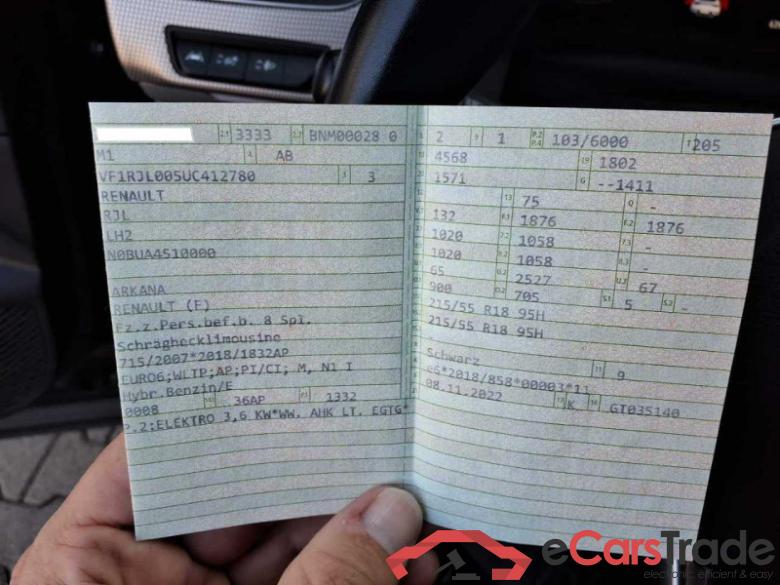 2.1 3333 2.2 BNM00028 0
M1 4 AB
VF1RJL005UC412780 3 3
RENAULT
RJL
LH2
N0BUA4510000
ARKANA
RENAULT (F)
Fz.z.Pers.bef.b. 8 Spl.
Schräghecklimousine
715/2007*2018/1832AP
EURO6;WLTP;AP;PI/CI; M, N1 I
Hybr.Benzin/E
0008 36AP 1332
P.2:ELEKTRO 3,6 KW*WW. AHK LT. EGTG*
2 9 1 P.2 P.4 103/6000 T 205
4568 19 1802
1571 G --1411
13 75 Q -
132 F.1 1876 F.2 1876
1020 7.2 1058 7.3 -
1020 8.2 1058 8.3 -
65 U.2 2527 U.3 67
900 O.2 705 S.1 5 S.2 -
215/55 R18 95H
215/55 R18 95H
Schwarz 11 9
e6*2018/858*00003*11
08.11.2022 K GT035140
eCarsTrade
electronic, efficient & easy